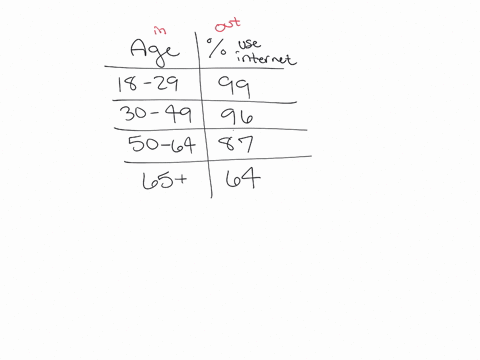 in out
Age % use internet
18-29 99
30-49 96
50-64 87
65+ 64